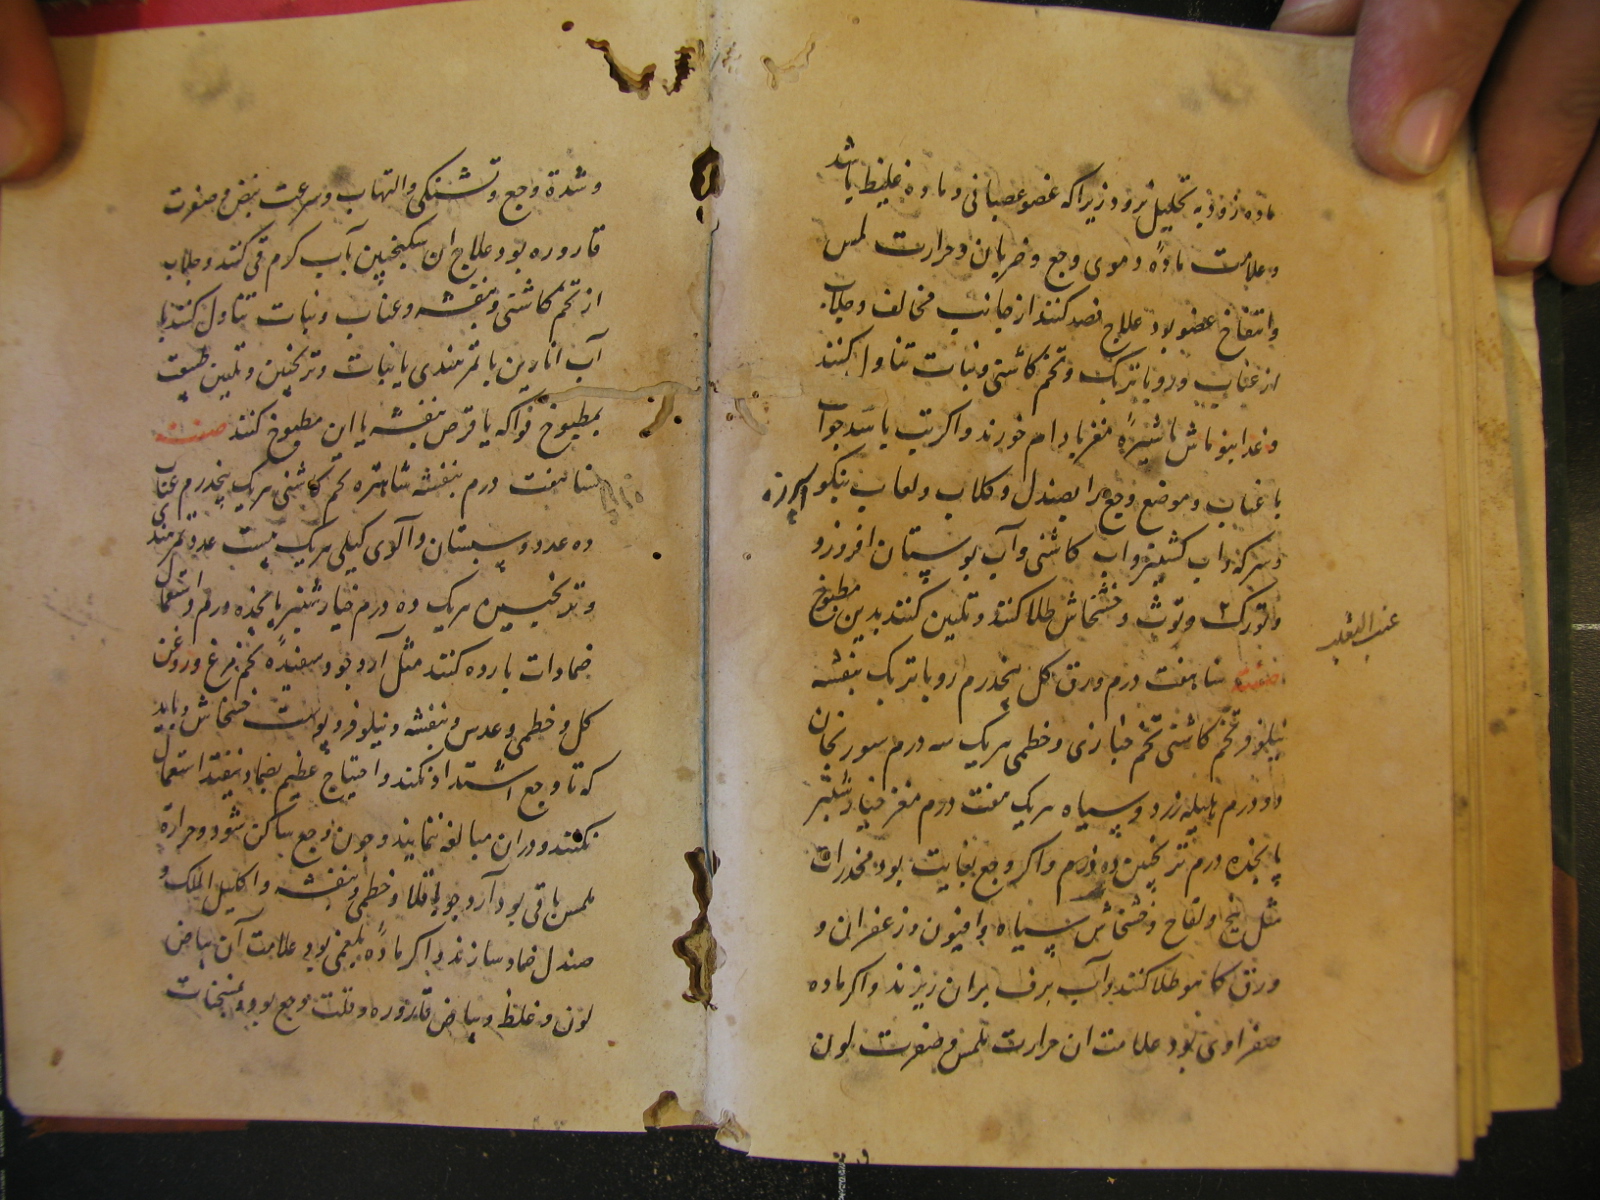 ماده زود به تحلیل نرود زیراکه عضو عصبانی و ماده غلیظ باشد
و علامت مادهٔ دموی وجع و ضربان و حرارت لمس
و انتفاخ عضو بود علاج فصد کنند از جانب مخالف و جلاب
از عناب و روباترک و تخم کاشنی و نبات تناول کنند
و غدا بنوماش با شیرهٔ مغز بادام خورند و اکر تب باشد جواب
با عناب و موضع وجع را بصندل و کلاب و لعاب بنکو
اسپرزه
و سرکه و اب کشنیز و اب کاشنی و آب بوستان افروز و
و توث و خشخاش طلا کنند و تلیین کنند بدین مطبوخ
عنب الثعلب
صفته سنا هفت درم ورق کل پنجدرم روباترک بنفشه
نیلوفر و تخم کاشنی تخم خبازی و خطمی هریک سه درم سورنجان
دو درم هلیله زرد و سیاه هریک هفت درم مغز خیارشنبر
پانجده درم ترنجبین ده درم و اکر وجع بغایت بود مخدرات
مثل بنج و لفاح و خشخاش سیاه و افیون و زعفران و
ورق کاهو طلا کنند و آب برف بران ریزند و اکر ماده
صفراوی بود علامت ان حرارت ملمس و صفرت لون
و شدة وجع و تشنکی و التهاب و سرعت نبض و صفرت
قاروره بود علاج ان سکنجبین بآب کرم قی کنند و جلاب
از تخم کاشنی و بنفشه و عناب و نبات تناول کنند یا
آب انارین با تمر هندی یا نبات و ترنجبین و تلیین طبیعت
بمطبوخ فواکه یا قرص بنفشه یا این مطبوخ کنند صفته
سنا هفت درم بنفشه شاهتره تخم کاشنی هریک پنجدرم عناب
ده عدد و سپستان و آلوی کیلی هریک بیست عدد تمر هندی
و ترنجبین هریک ده درم خیارشنبر پانجده درم و استعمال
ضمادات بارده کنند مثل آرد جو و سفیدهٔ تخم مرغ و روغن
کل و خطمی و عدس و بنفشه و نیلوفر و پوست خشخاش و باید
که تا وجع اشتداد نکند و احتیاج عظیم بضماد نیفتد استعمال
نکنند و دران مبالغه ننمایند و جون وجع ساکن شود و حرارة
ملمس باقی بود آرد جو و باقلا و خطمی و بنفشه و اکلیل الملک و
صندل ضماد سازند و اکر مادهٔ بلغمی بود علامت آن بیاض
لون و غلظ و بیاض قاروره و قلت وجع بود و مسخنات